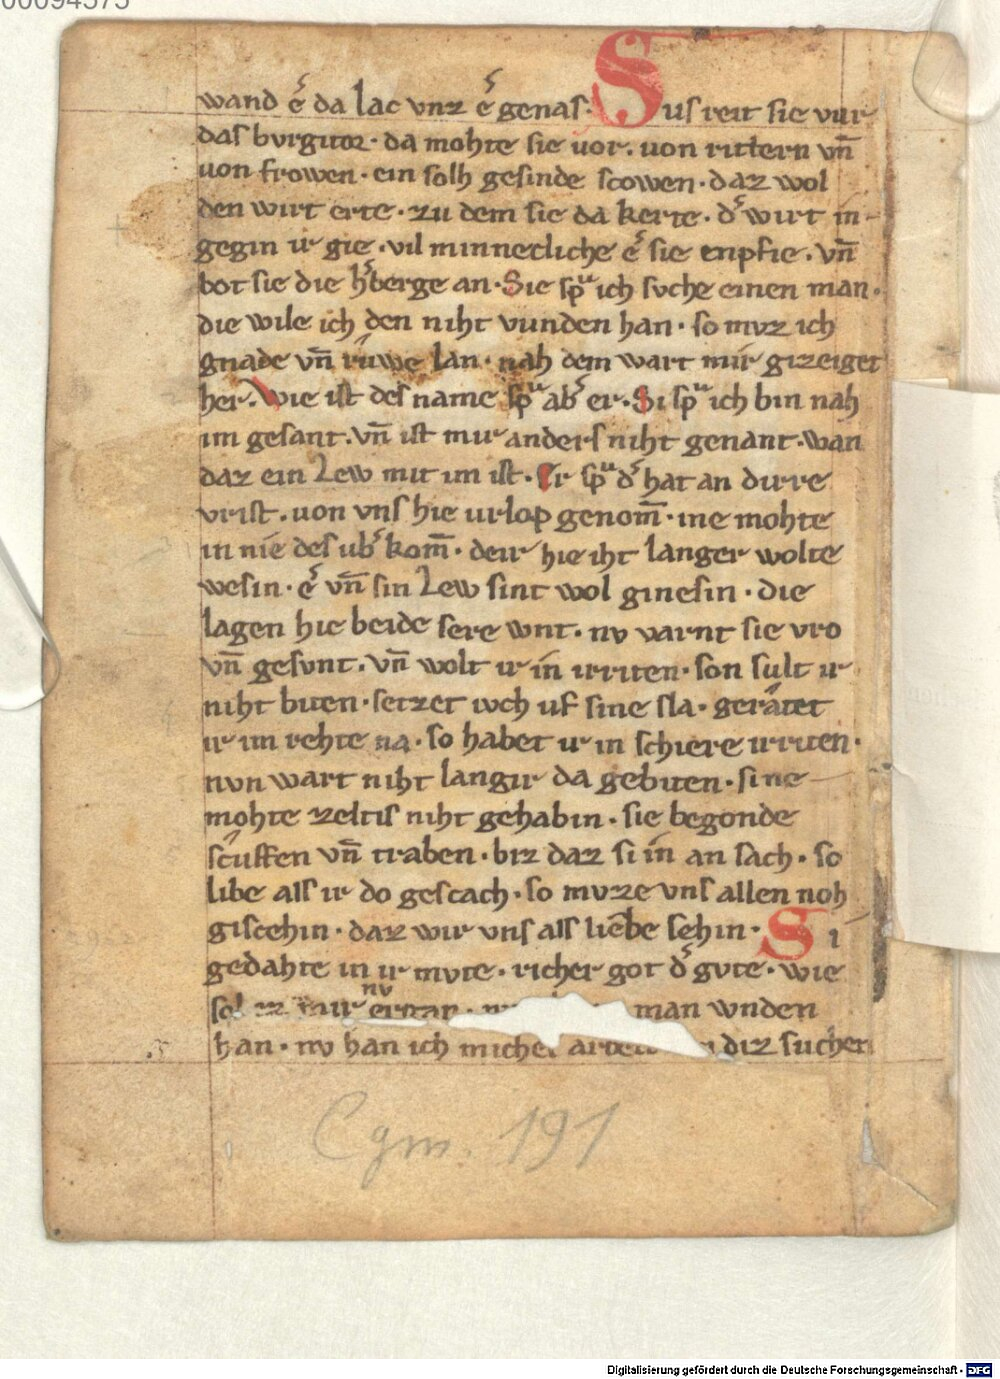 00094575
wand e͛ da lac vnz e͛ genas· Sus reit sie vur
das burgitor· da mohte sie uor· uon rittern vn̄
uon frowen· ein solh gesinde scowen· daz wol
den wirt erte· zu dem sie da kerte· d͛ wirt in-
gegin ir gie· vil minnecliche e͛ sie enpfie· vn̄
bot sie die h͛berge an· Sie spͧ ich suche einen man·
die wile ich den niht vunden han· so muz ich
gnade vn̄ rủwe lan· nah dem wart mir gizeiget
her· Wie ist des name spͧ ab͛ er· Si spͧ ich bin nah
im gesant· vn̄ ist mir anders niht genant· wan
daz ein Lew mit im ist· Er spͧ d͛ hat an dirre
vrist· uon vns hie urlop genom̄· ine mohte
in nie des ub͛kom̄· deir hie iht langer wolte
wesin· e͛ vn̄ sin Lew sint wol ginesin· die
lagen hie beide sere wnt· nv varnt sie vro
vn̄ gesunt· vn̄ wolt ir in irriten· son sult ir
niht biten· setzet iuch uf sine sla· geratet
ir im rehte na· so habet ir in schiere irriten·
nvn wart niht langir da gebiten· sine
mohte zeltis niht gehabin· sie begonde
sciuften vn̄ traben· biz daz si in an sach· so
libe als ir do gescach· so muze vns allen noh
giscehin· daz wir vns als liebe sehin· Si
gedahte in ir mvte· richer got d͛ gvte· wie
sol mir nv man wnden
han· nv han ich michel diz suchen
Cgm. 191
Digitalisierung gefördert durch die Deutsche Forschungsgemeinschaft - DFG